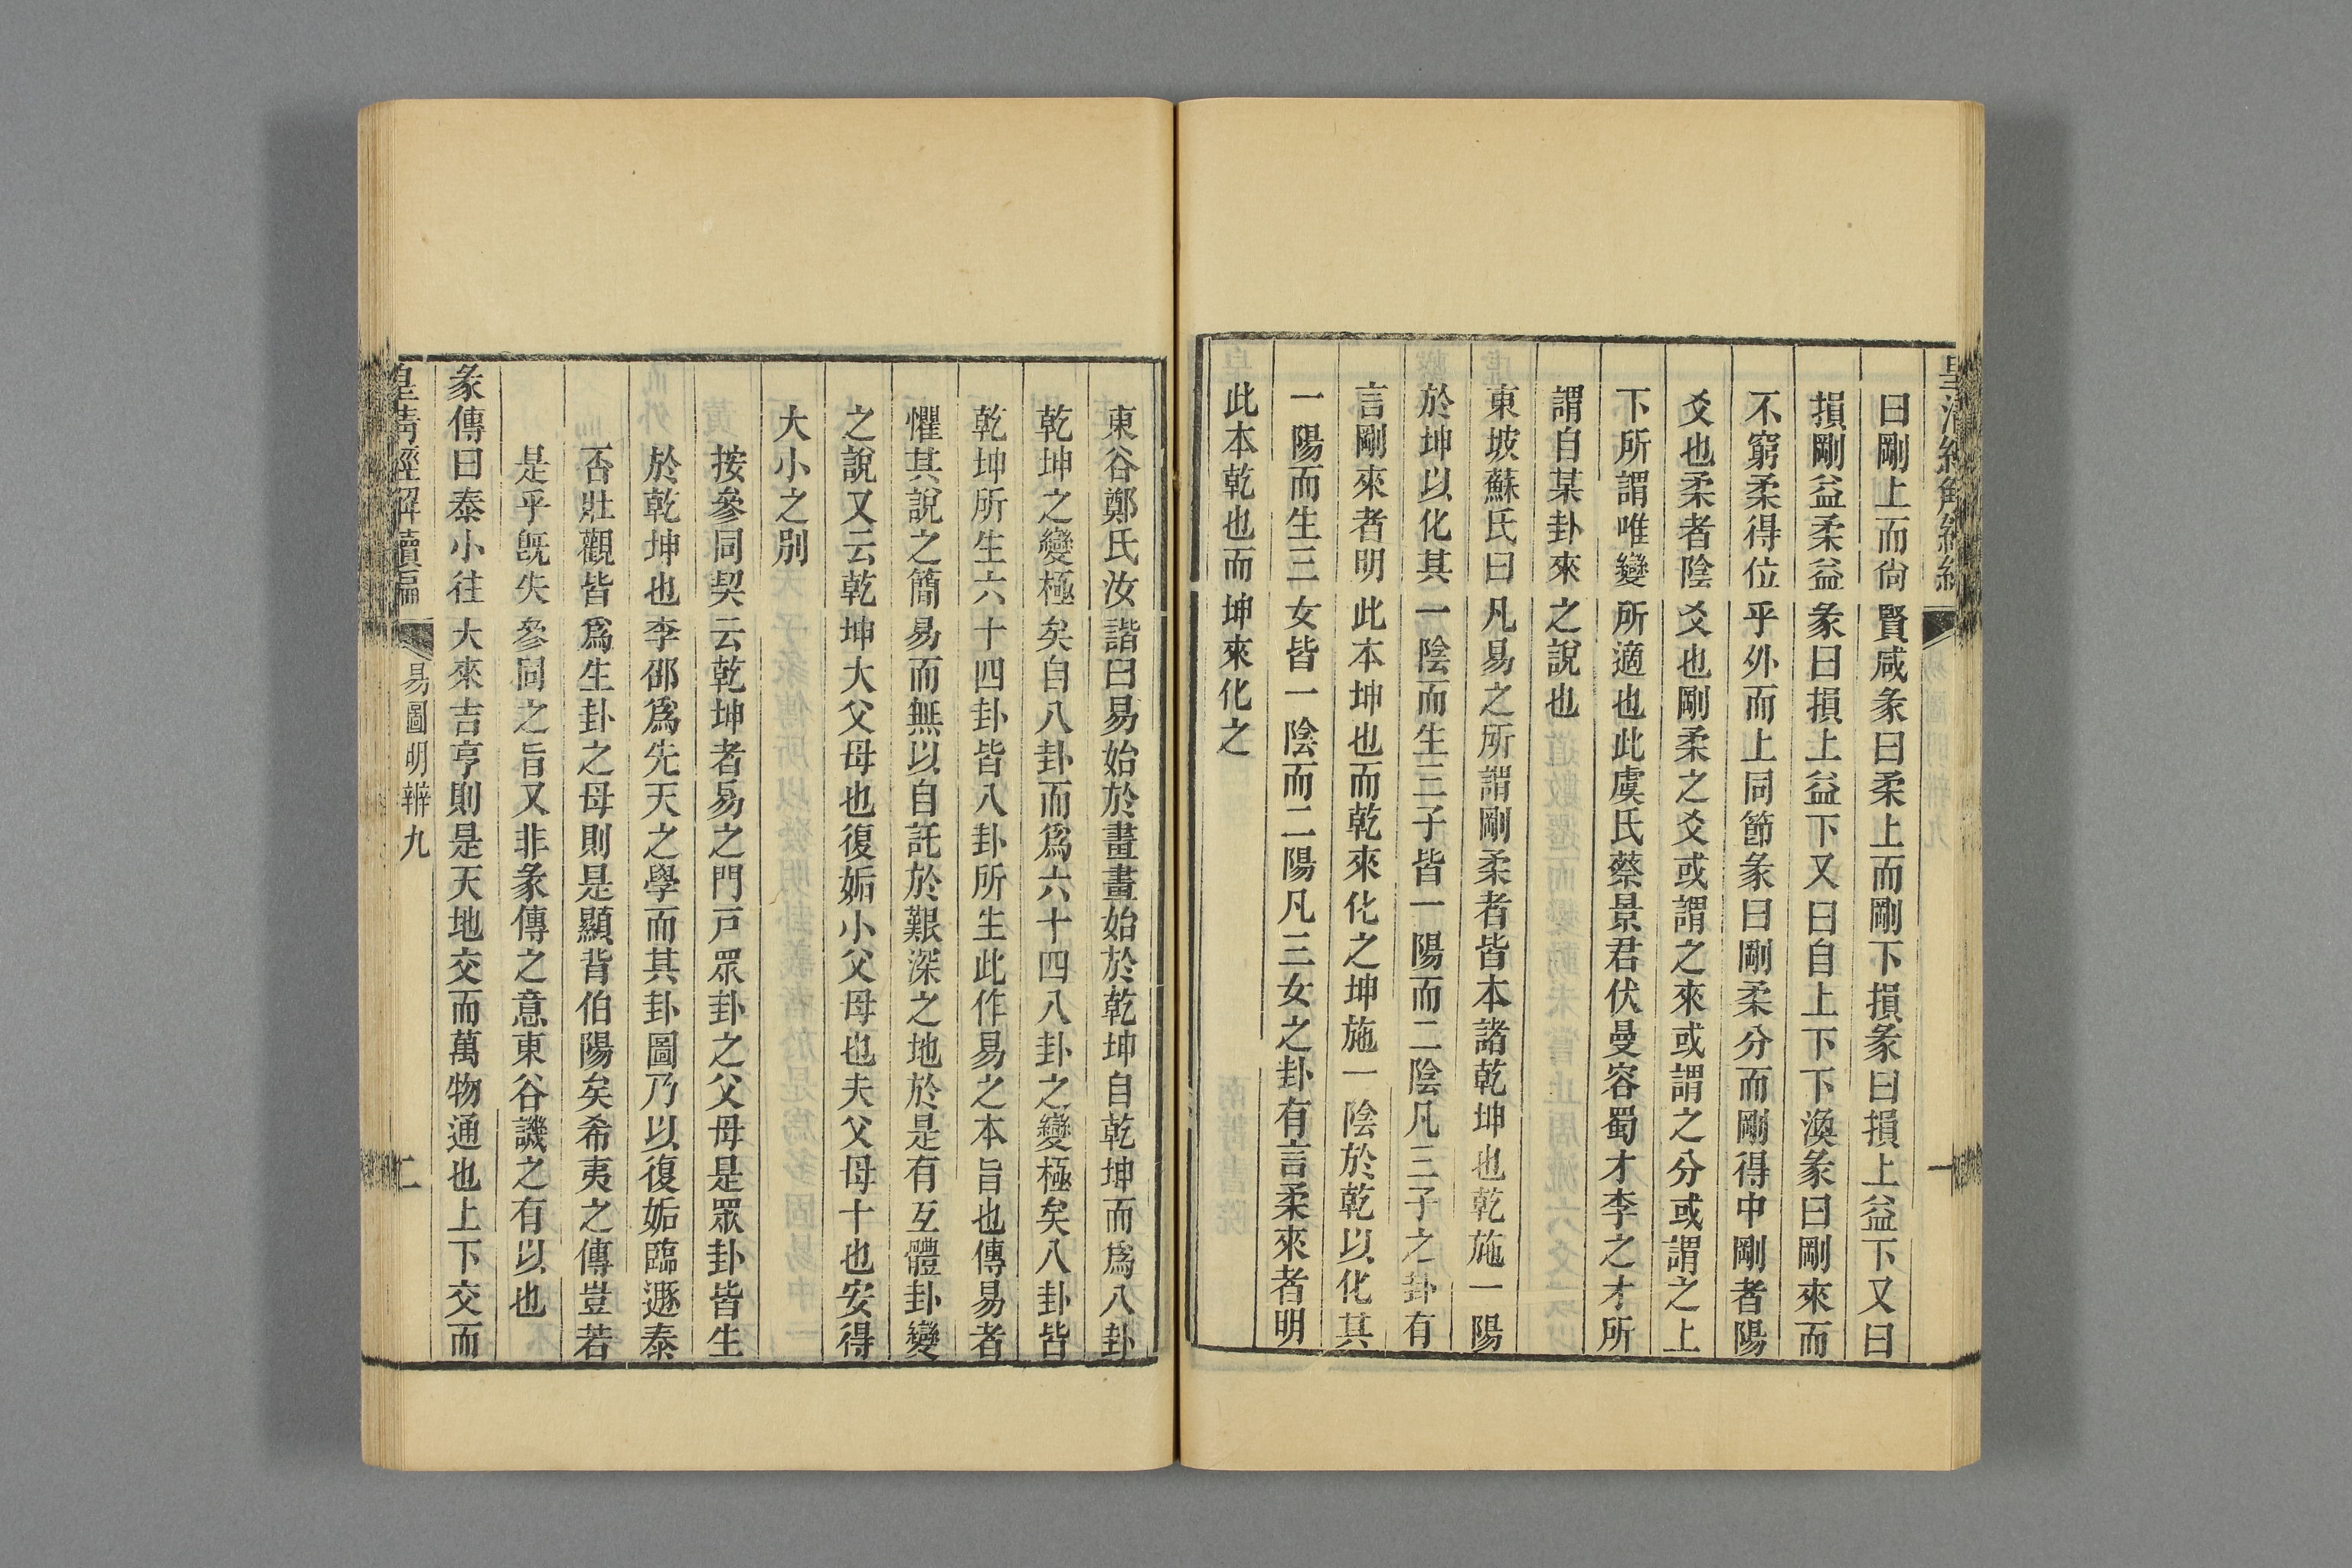 曰剛上而尙賢咸彖曰柔上而剛下損彖曰損上益下又曰
損剛益柔益彖曰損上益下又曰自上下下渙彖曰剛來而
不窮柔得位乎外而上同節彖曰剛柔分而剛得中剛者陽
爻也柔者陰爻也剛柔之爻或謂之來或謂之分或謂之上
下所謂唯變所適也此虞氏蔡景君伏曼容蜀才李之才所
謂自某卦來之說也
東坡蘇氏曰凡易之所謂剛柔者皆本諸乾坤也乾施一陽
於坤以化其一陰而生三子皆一陽而二陰凡三子之卦有
言剛來者明此本坤也而乾來化之坤施一陰於乾以化其
一陽而生三女皆一陰而二陽凡三女之卦有言柔來者明
此本乾也而坤來化之
一
東谷鄭氏汝諧曰易始於畫畫始於乾坤自乾坤而爲八卦
乾坤之變極矣自八卦而爲六十四八卦之變極矣八卦皆
乾坤所生六十四卦皆八卦所生此作易之本旨也傳易者
懼其說之簡易而無以自託於艱深之地於是有互體卦變
之說又云乾坤大父母也復姤小父母也夫父母十也安得
大小之別
按參同契云乾坤者易之門戸眾卦之父母是眾卦皆生
於乾坤也李邵爲先天之學而其卦圖乃以復姤臨遯泰
否壯觀皆爲生卦之母則是顯背伯陽矣希夷之傳豈若
是乎旣失參同之旨又非彖傳之意東谷譏之有以也
彖傳曰泰小往大來吉亨則是天地交而萬物通也上下交而
皇淸經解續編
易圖明辨九
二